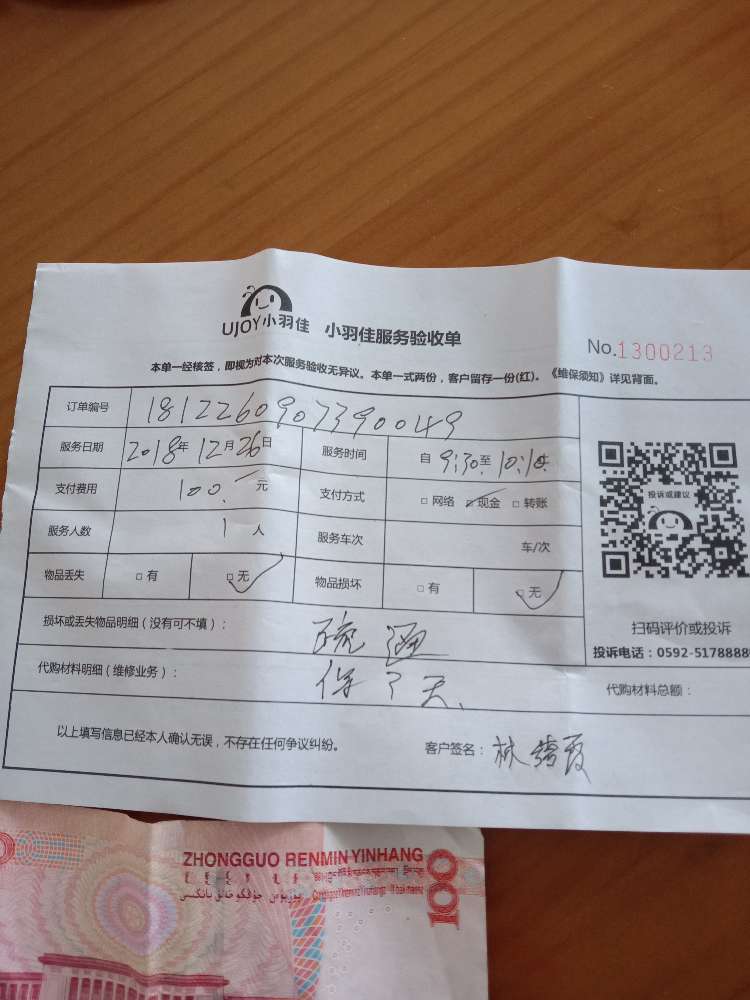 UJOY小羽佳 小羽佳服务验收单
No.1300213
本单一经核签，即视为对本次服务验收无异议。本单一式两份，客户留存一份(红)。《维保须知》详见背面。
订单编号 1812260907390049
服务日期 2018年12月26日 服务时间 自 9:30至 10:10
支付费用 100. 元 支付方式 □ 网络 ☑ 现金 □ 转账
服务人数 1 人 服务车次 车/次
物品丢失 □ 有 ☑ 无 物品损坏 □ 有 ☑ 无
投诉或建议
扫码评价或投诉
投诉电话：0592-5178888
损坏或丢失物品明细（没有可不填）： 疏通
代购材料明细（维修业务）： 保7天、
代购材料总额：
以上填写信息已经本人确认无误，不存在任何争议纠纷。 客户签名： 林
ZHONGGUO RENMIN YINHANG
100